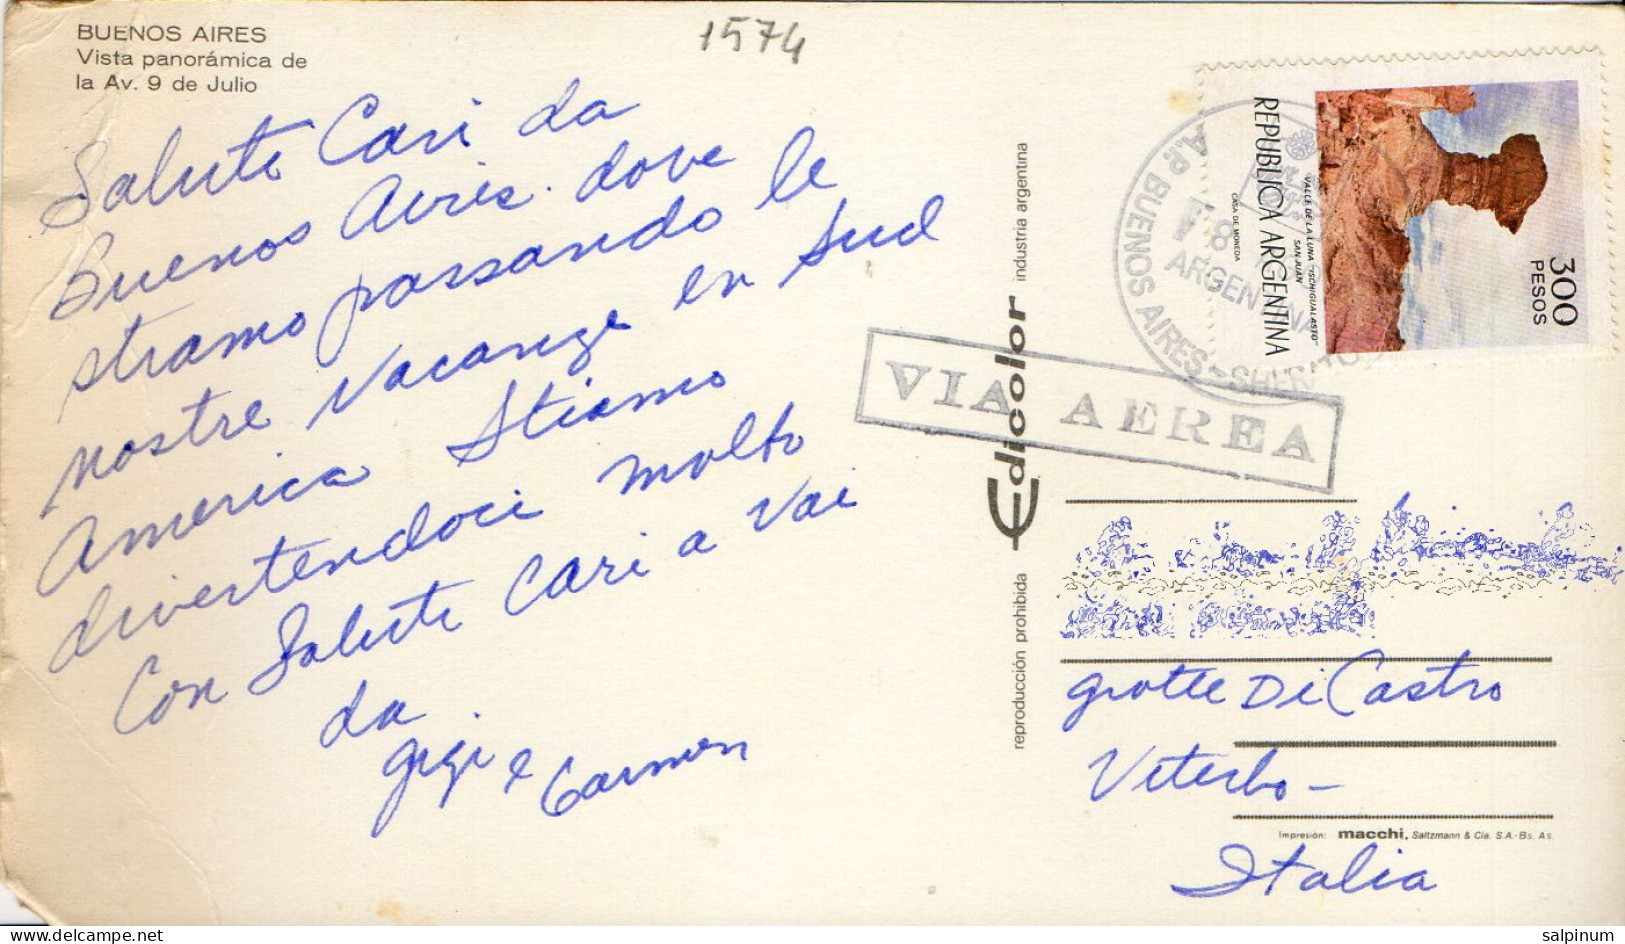 BUENOS AIRES
Vista panorámica de
la Av. 9 de Julio
1574
Saluti Cari da
Buenos Aires. dove
stiamo passando le
nostre vacanze en Sud
America Stiamo
divertendoci molto
Con Saluti Cari a Voi
da
gigi e Carmen
industria argentina
Edicolor
reproducción prohibida
REPUBLICA ARGENTINA
VALLE DE LA LUNA "ISCHIGUALASTO"
SAN JUAN
CASA DE MONEDA
300
PESOS
A.P. BUENOS AIRES - SHERATON
ARGENTINA
VIA AEREA
grotte Di Castro
Viterbo -
Italia
Impresión: macchi, Saltzmann & Cia. S.A.-Bs. As.
delcampe.net
salpinum